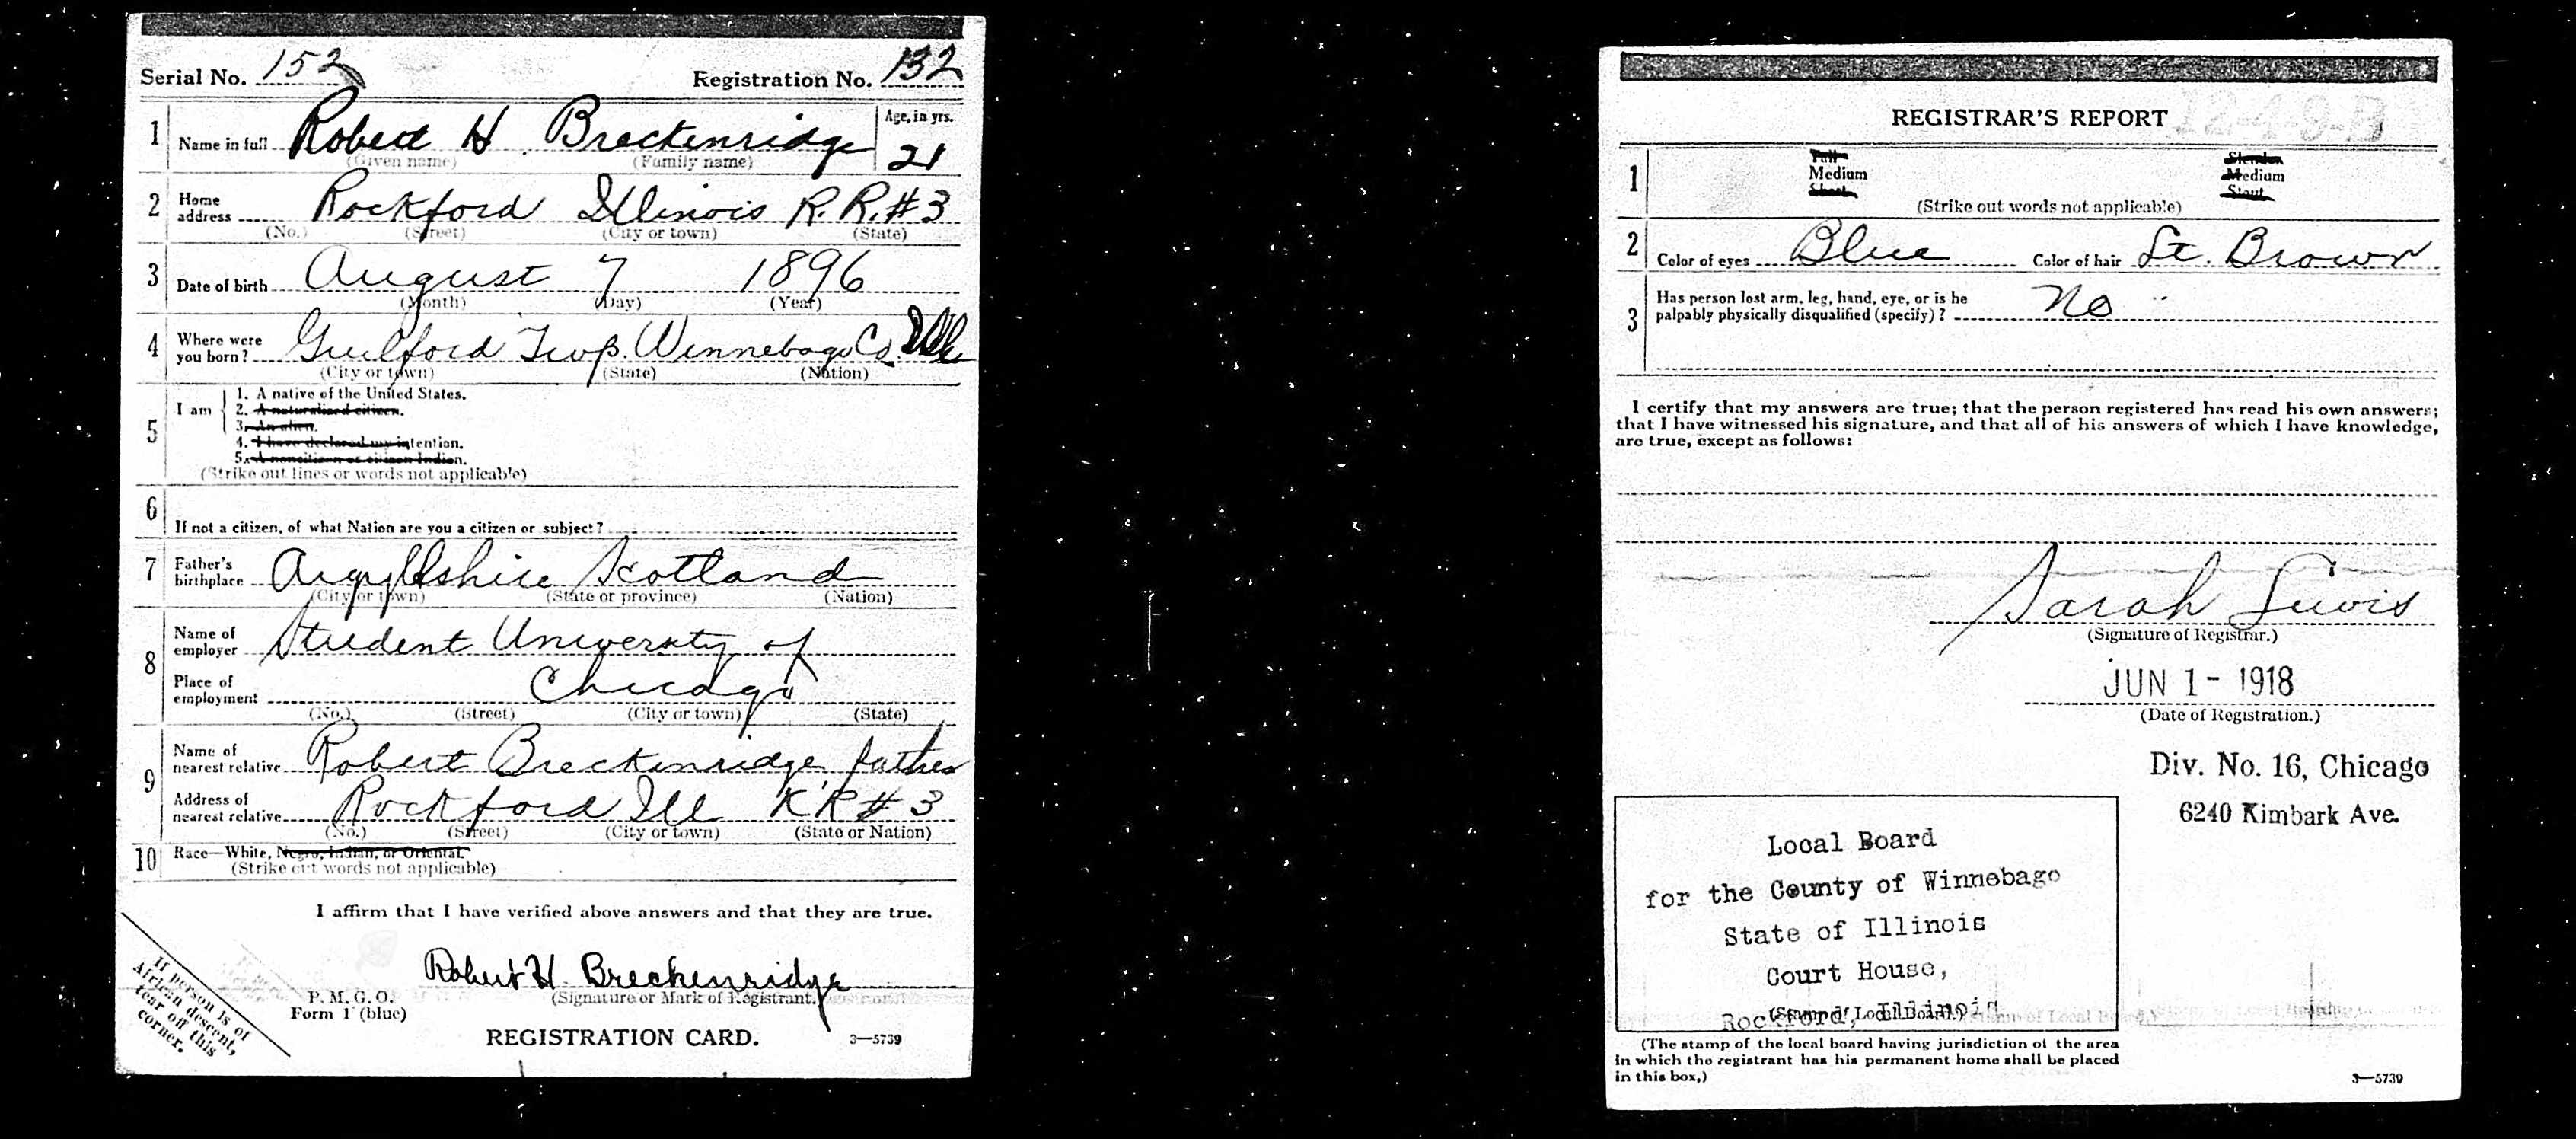 Serial No. 152 Registration No. 132
1 Name in full Robert H Breckenridge Age, in yrs. 21
(Given name) (Family name)
2 Home address Rockford Illinois R.R.#3
(No.) (Street) (City or town) (State)
3 Date of birth August 7 1896
(Month) (Day) (Year)
4 Where were you born? Guilford Twp. Winnebago Co. Ill
(City or town) (State) (Nation)
5 I am 1. A native of the United States.
2. A naturalized citizen.
3. An alien.
4. I have declared my intention.
5. A noncitizen or citizen Indian.
(Strike out lines or words not applicable)
6 If not a citizen, of what Nation are you a citizen or subject?
7 Father's birthplace Argyllshire Scotland
(City or town) (State or province) (Nation)
8 Name of employer Student University of
Place of employment Chicago
(No.) (Street) (City or town) (State)
9 Name of nearest relative Robert Breckenridge, father
Address of nearest relative Rockford Ill R R # 3
(No.) (Street) (City or town) (State or Nation)
10 Race—White, Negro, Indian, or Oriental.
(Strike out words not applicable)
I affirm that I have verified above answers and that they are true.
Robert H. Breckenridge
(Signature or Mark of Registrant.)
P. M. G. O.
Form 1 (blue)
REGISTRATION CARD. 3—5739
If person is of
African descent,
tear off this
corner.
REGISTRAR'S REPORT 12-4-9-B
1 Tall Slender
Medium Medium
Short Stout
(Strike out words not applicable)
2 Color of eyes Blue Color of hair Lt. Brown
3 Has person lost arm, leg, hand, eye, or is he
palpably physically disqualified (specify)? No
I certify that my answers are true; that the person registered has read his own answers;
that I have witnessed his signature, and that all of his answers of which I have knowledge,
are true, except as follows:
Sarah Lewis
(Signature of Registrar.)
JUN 1 - 1918
(Date of Registration.)
Div. No. 16, Chicago
6240 Kimbark Ave.
Local Board
for the County of Winnebago
State of Illinois
Court House,
Rockford, Illinois
(Stamp of Local Board.)
(The stamp of the local board having jurisdiction of the area
in which the registrant has his permanent home shall be placed
in this box.)
3—5739